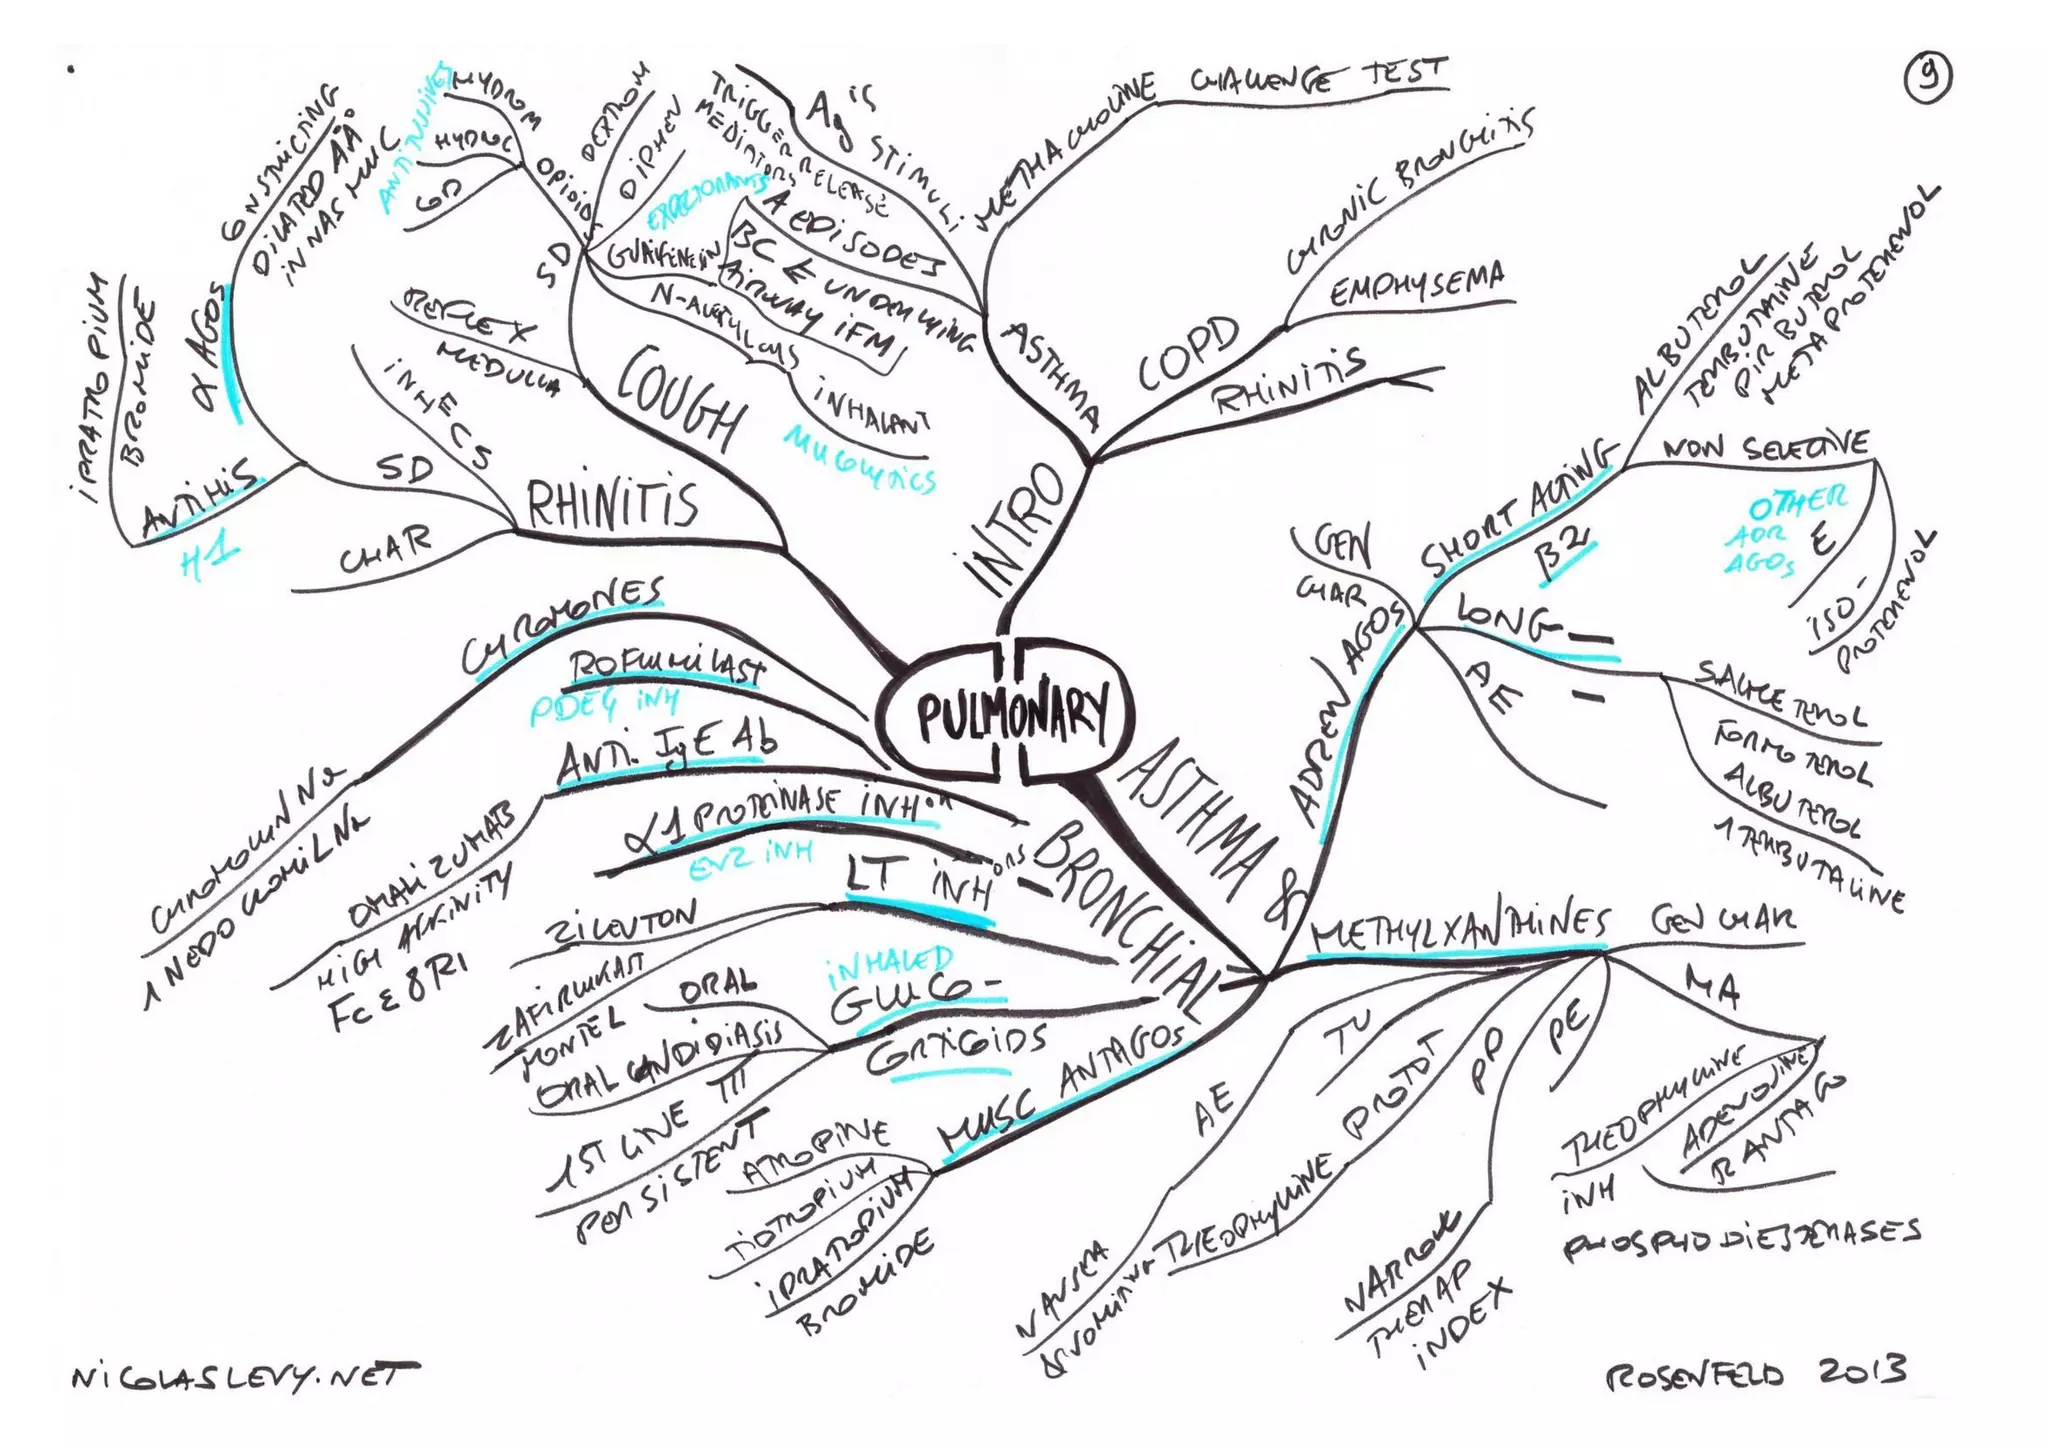 9
PULMONARY
INTRO
ASTHMA
Ag is
STIMULI
TRIGGER RELEASE
MEDIATORS
AEDISODES
BC & UNDERLYING
AIRWAY IFM
METHACHOLINE CHALLENGE TEST
COPD
CHRONIC BRONCHITIS
EMPHYSEMA
RHINITIS
COUGH
REFLEX
MEDULLA
SD
OPIOIDS
ANTITUSSIVES
HYDROM
HYDROC
COD
DEXTROM
DIPHEN
EXPECTORANTS
GUAIFENESIN
N-ACETYLCYS
INHALANT
MUCOLYTICS
RHINITIS
CHAR
SD
INHECS
α AGOS
CONSTRICTING
DILATED AAº
IN NAS MUC
ANTIHIS
H1
IPRATROPIUM
BROMIDE
CHROMONES
CHROMOLIN Na
1 NEDOCROMIL Na
ROFLUMILAST
PDE4 INH
ANTI-IgE Ab
OMALIZUMAB
HIGH AFFINITY
FcƐ8RI
α1 PROTEINASE INHon
ENZ INH
LT INHORS
ZILEUTON
ZAFIRLUKAST
MONTEL
INHALED
GLUCO-
CORTICOIDS
ORAL
ORAL CANDIDIASIS
1ST LINE TTT
PERSISTENT
ASTHMA &
BRONCHIAL
MUSC ANTAGOS
ATROPINE
TIOTROPIUM
IPRATROPIUM
BROMIDE
ADREN AGOS
GEN
CHAR
SHORT ACTING
B2
ALBUTEROL
TERBUTALINE
PIRBUTEROL
METAPROTERENOL
NON SELECTIVE
OTHER
ADR
AGOS
E
ISO-
PROTERENOL
LONG -
-
SALMETEROL
FORMOTEROL
ALBUTEROL
1 TERBUTALINE
AE
METHYLXANTHINES
GEN CHAR
MA
THEOPHYLLINE
ADENOSINE
R ANTAGO
INH
PHOSPHODIESTERASES
PE
PP
NARROW
THERAP
INDEX
PROTOT
THEOPHYLLINE
TU
AE
NAUSEA
& VOMITING
NICOLASLEVY.NET
ROSENFELD 2013